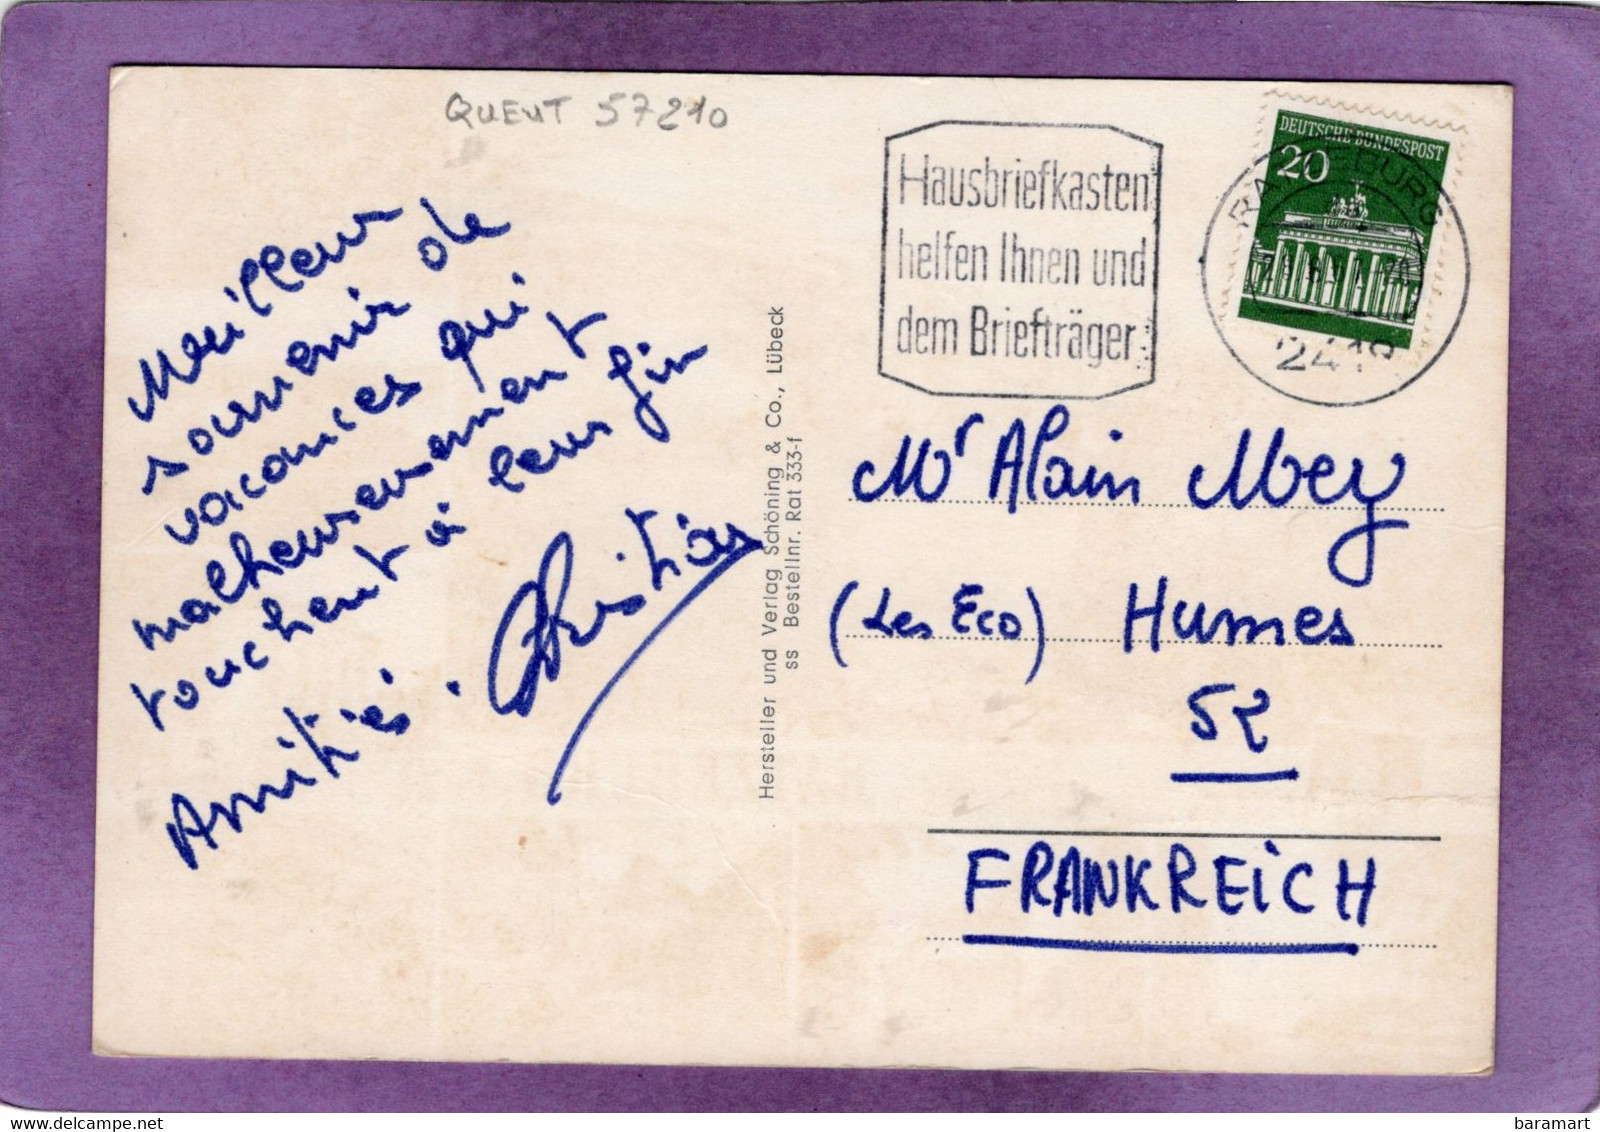 QUEUT 57210
Meilleur
souvenir de
vacances qui
malheureusement
touchent à leur fin
Amitiés. Christian
Hersteller und Verlag Schöning & Co., Lübeck
ss Bestellnr. Rat 333-f
Hausbriefkasten
helfen Ihnen und
dem Briefträger
DEUTSCHE BUNDESPOST
20
RATZEBURG
2418
Mr Alain Mey
(Les Eco) Humes
52
FRANKREICH
baramart